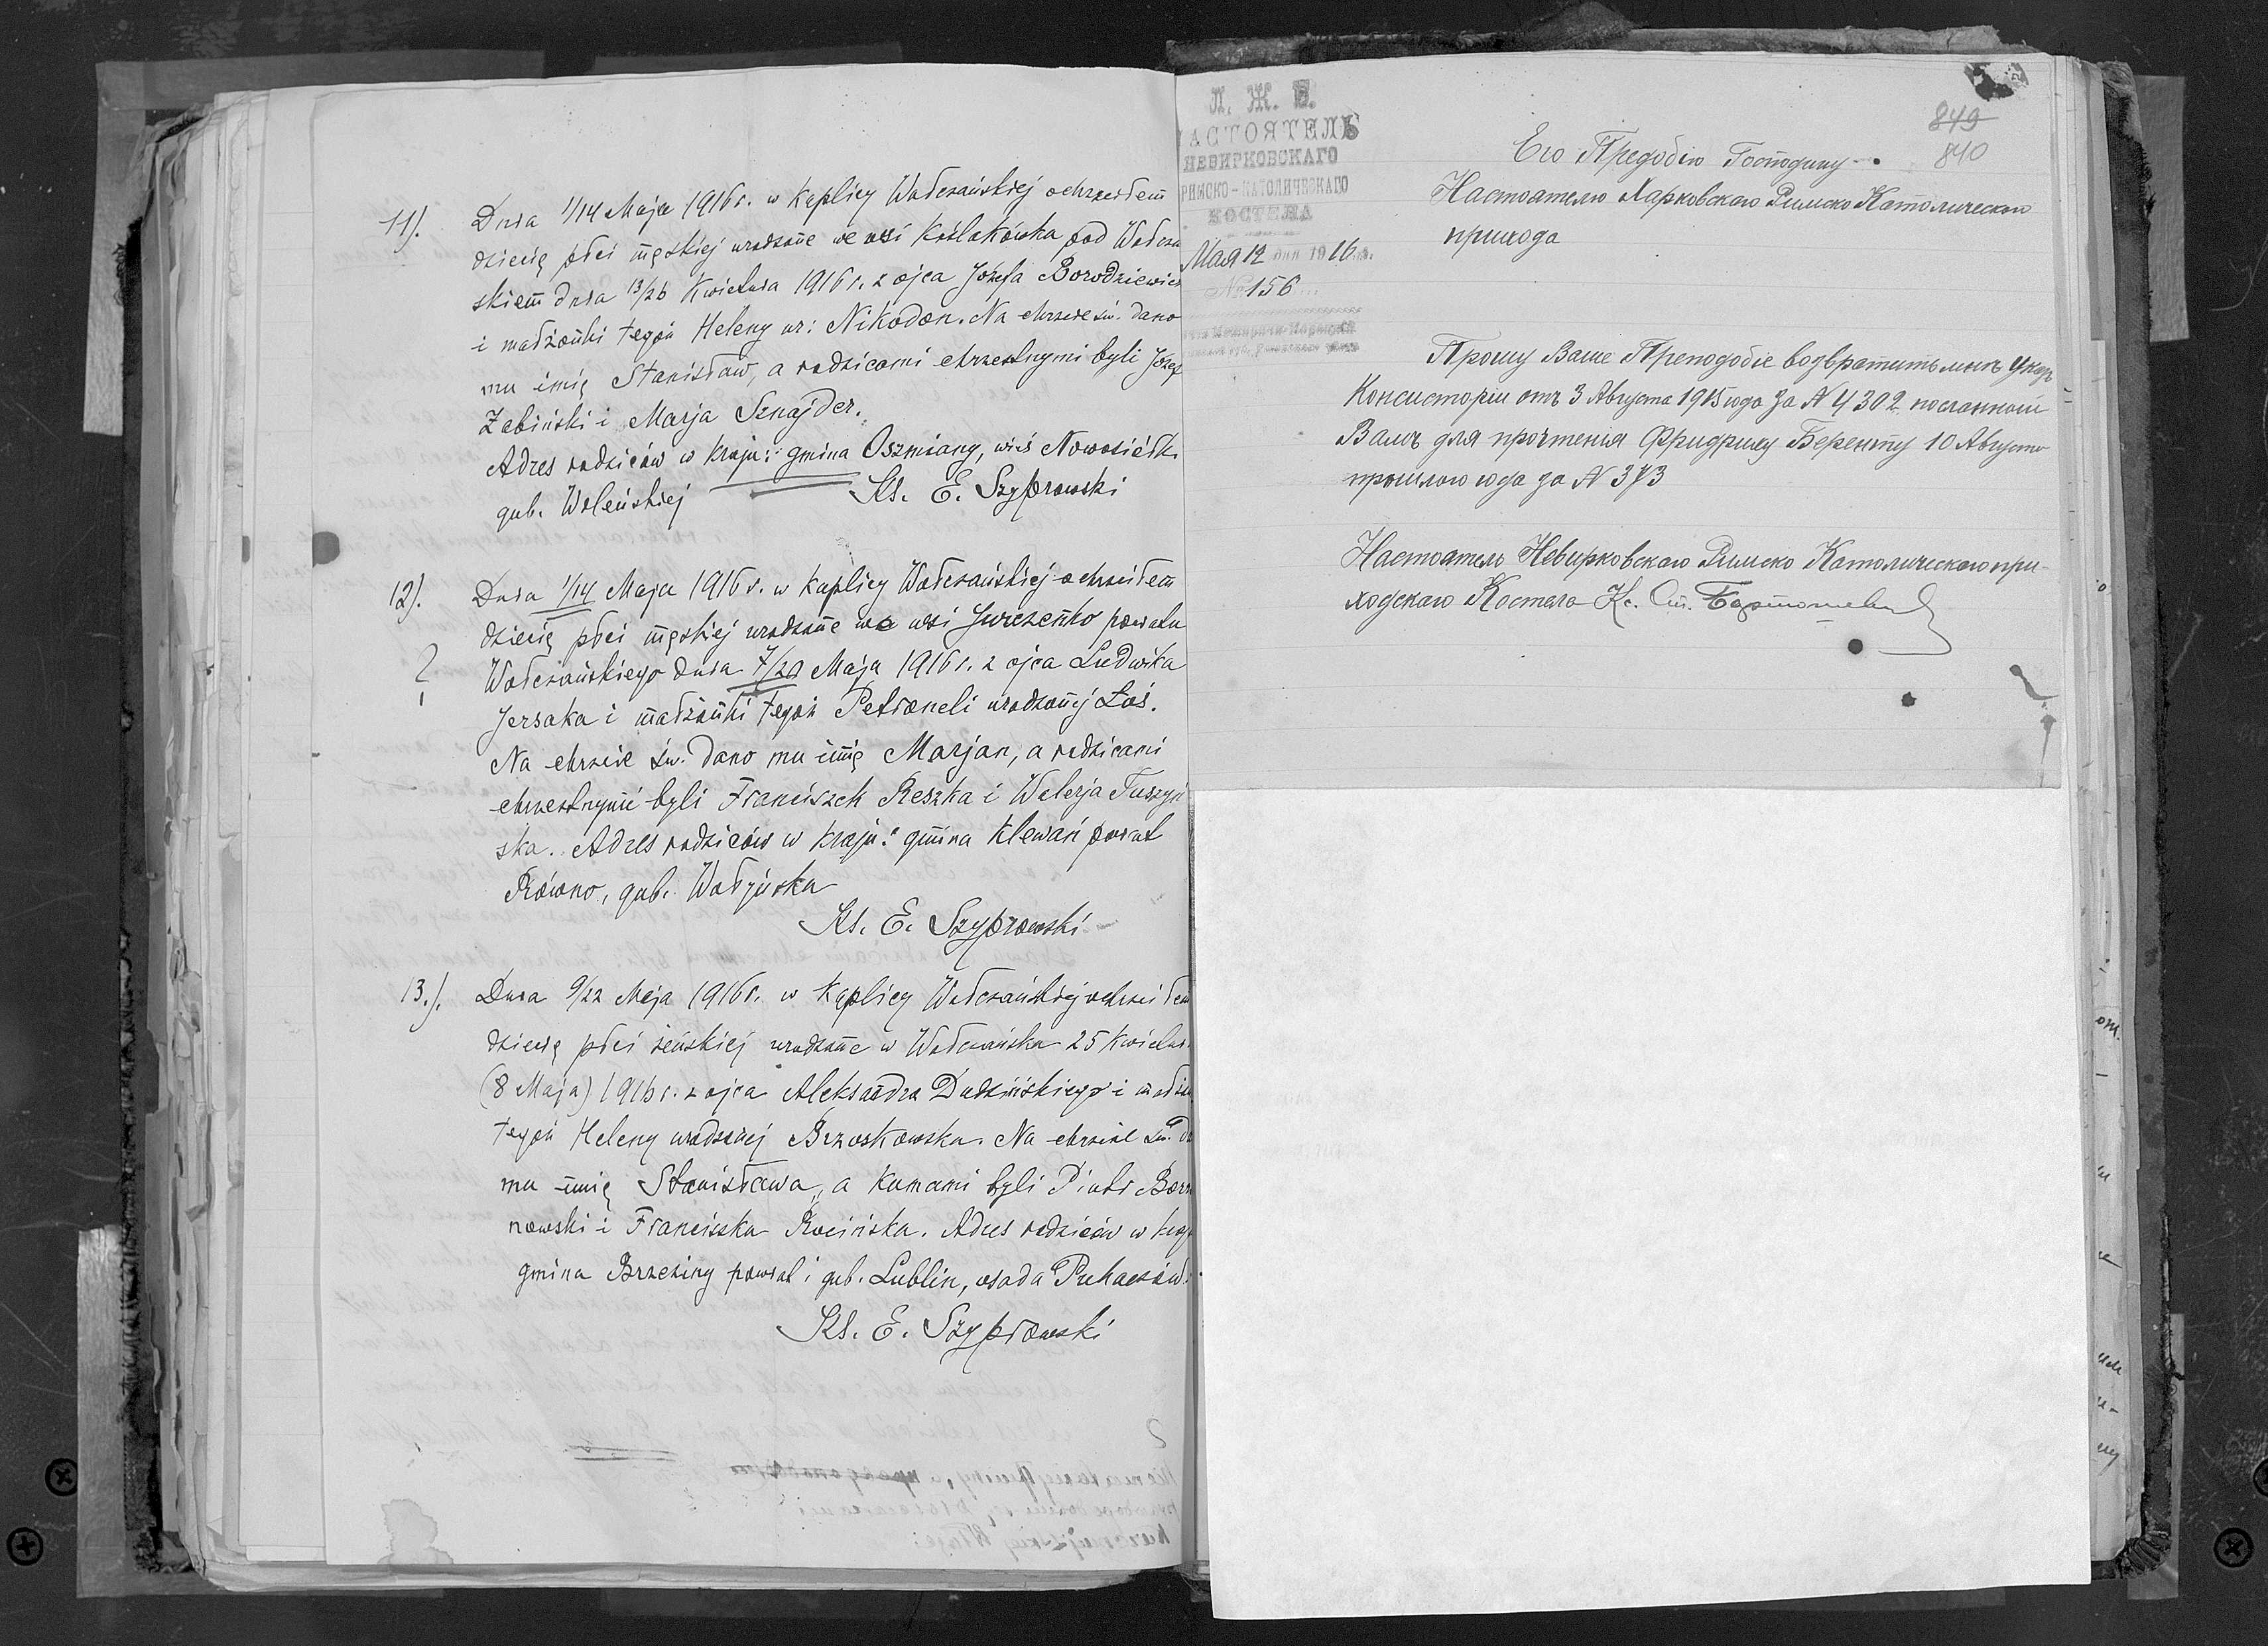 11). Dnia 1/14 Maja 1916 r. w Kaplicy Wołczańskiej ochrzciłem
dziecię płci męskiej urodzone we wsi Koźlakówka pod Wołczań
skiem dnia 13/26 Kwietnia 1916 r. z ojca Józefa Borodziewicz
i małżonki tegoż Heleny ur: Nikodon. Na chrzcie św. dano
mu imię Stanisław, a rodzicami chrzestnymi byli Józef
Żabiński i Marja Sznajder.
Adres rodziców w kraju: gmina Oszmiany, wieś Nowosiółk
gub. Wileńskiej
Ks. E. Szyprowski
12). Dnia 1/14 Maja 1916 r. w Kaplicy Wołczańskiej ochrzciłem
dziecię płci męskiej urodzone we wsi Jurczenko powiatu
? Wołczańskiego dnia 7/20 Maja 1916 r. z ojca Ludwika
Jersaka i małżonki tegoż Petroneli urodzonej Łoś.
Na chrzcie św. dano mu imię Marjan, a rodzicami
chrzestnymi byli Franciszek Reszka i Walerja Tuszyń
ska. Adres rodziców w kraju: gmina Klewań powiat
Równo, gub. Wołyńska
Ks. E. Szyprowski
13.). Dnia 9/22 Maja 1916 r. w Kaplicy Wołczańskiej ochrzciłem
dziecię płci żeńskiej urodzone w Wołczańsku 25 Kwietni
(8 Maja) 1916 r. z ojca Aleksandra Dudzińskiego i małżon
tegoż Heleny urodzonej Brzoskowska. Na chrzcie św. da
mu imię Stanisława, a kumami byli Piotr
nowski i Franciszka Rocińska. Adres rodziców w kraj
gmina Brzeziny powiat i gub. Lublin, osada Puhaczów.
Ks. E. Szyprowski
849
840
Л. Ж. Е.
НАСТОЯТЕЛЬ
НЕВИРКОВСКАГО
РИМСКО-КАТОЛИЧЕСКАГО
КОСТЕЛА
Мая 12 дня 1916 г.
№ 156
Его Предобію Господину
Настоятелю Харковскаго Римско Католическаго
прихода
Прошу Ваше Преподобіе возвратить мнѣ Указъ
Консисторіи отъ 3 Августа 1915 года за N 4302 посланный
Вамъ для прочтенія Фридриху Беренту 10 Августа
прошлого года за N 373
Настоятель Невирковскаго Римско Католическаго при-
ходскаго Костела Кс. Ст.